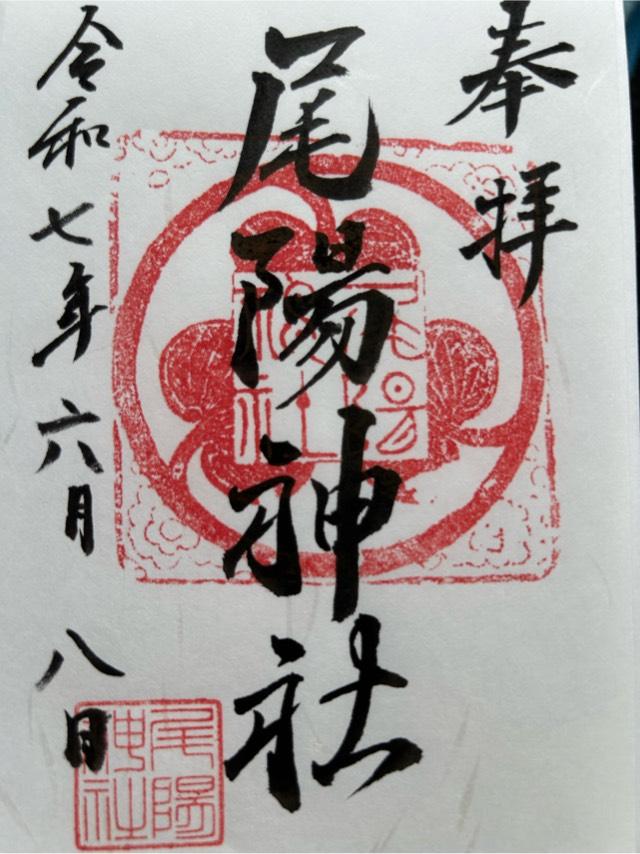 奉拝
尾陽神社
令和七年六月八日
尾陽
神社
尾陽
神社